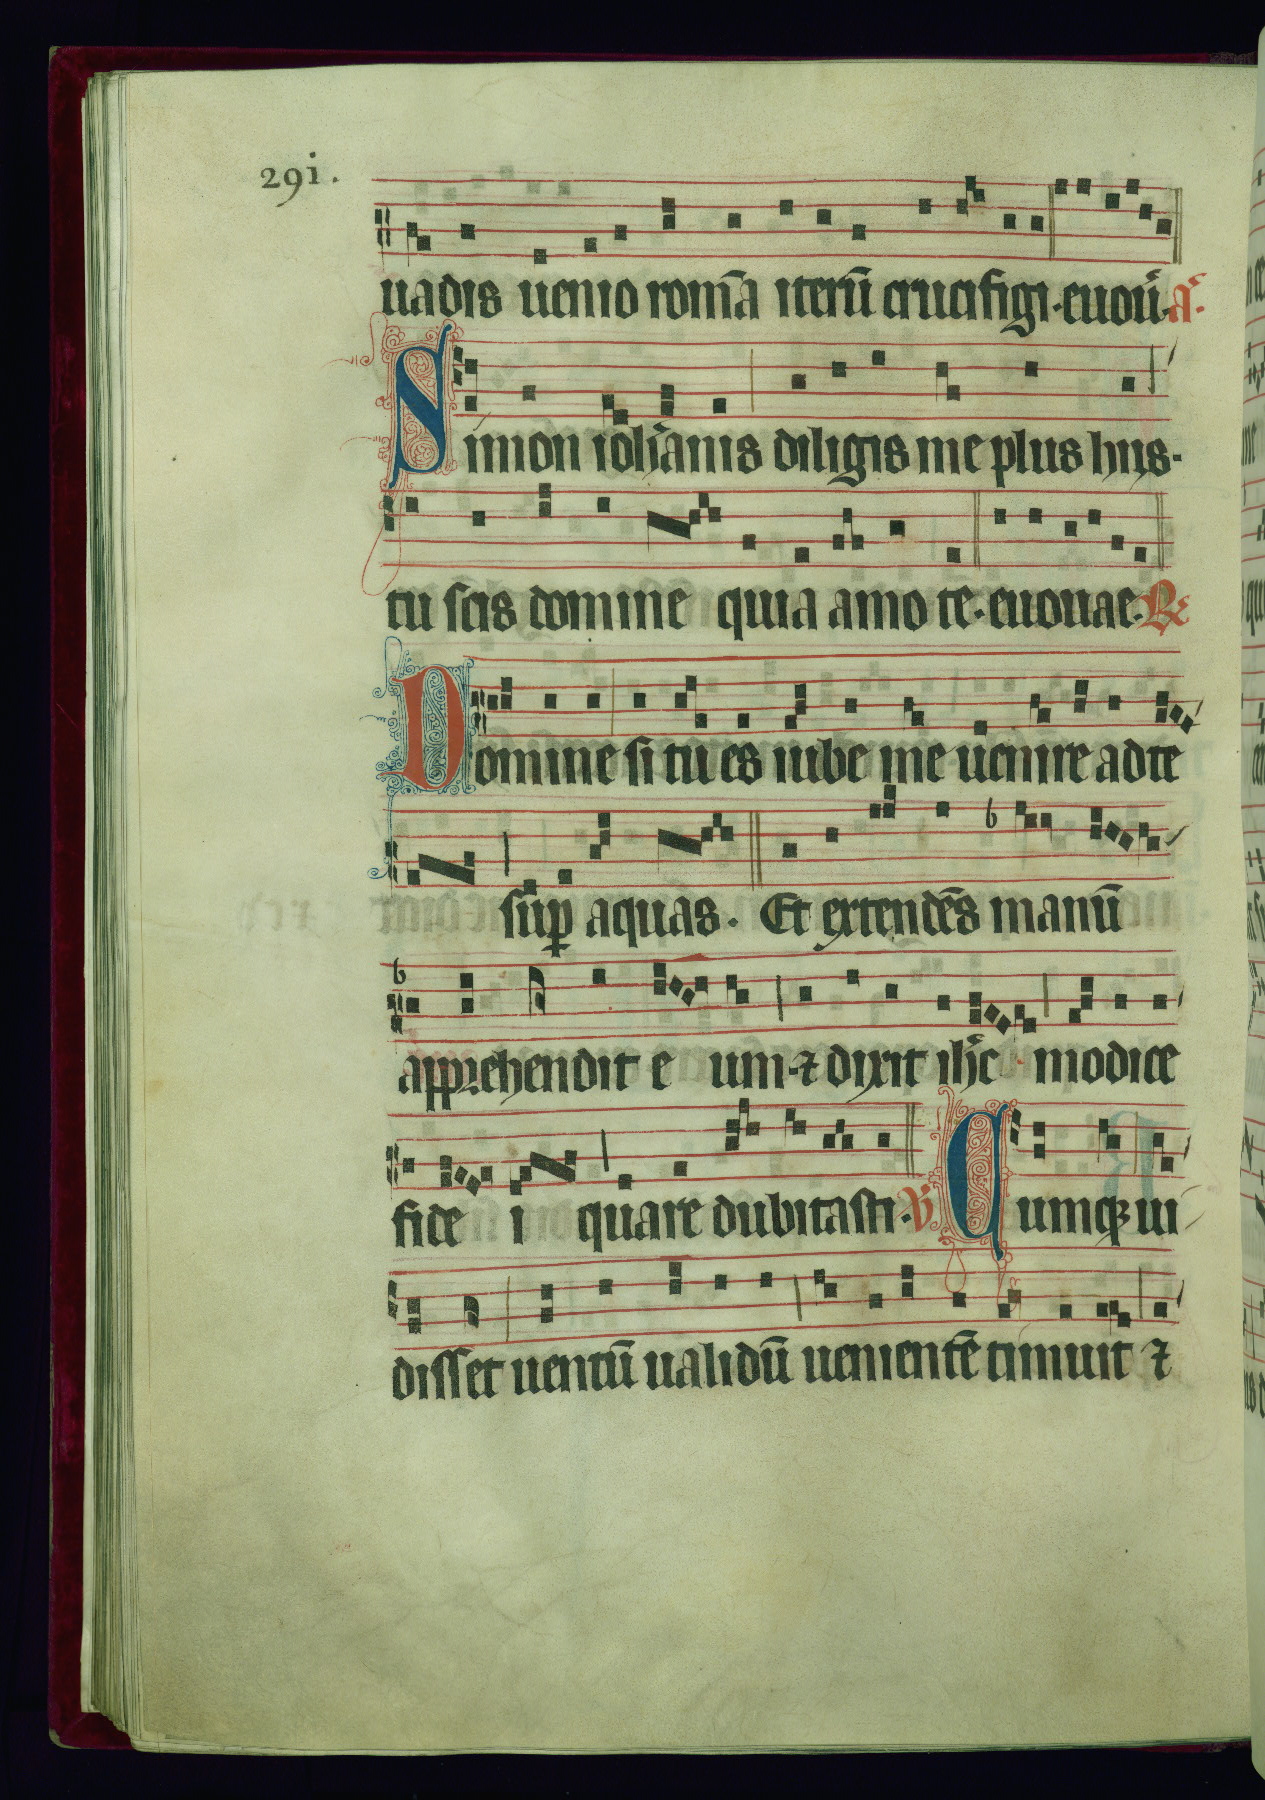 291.
uadis uenio romā iterū crucifigi·euoū·a͛·
Simon ioh̄anis diligis me plus hiis·
tu scis domine quia amo te·euouae·℟
Domine si tu es iube me uenire ad te
suꝑ aquas. Et extendēs manū
apprehendit e um·⁊ dixit ih̄c modice
fide i quare dubitasti·℣ Cumqꝫ ui
disset uentū ualidū uenientē timuit ⁊